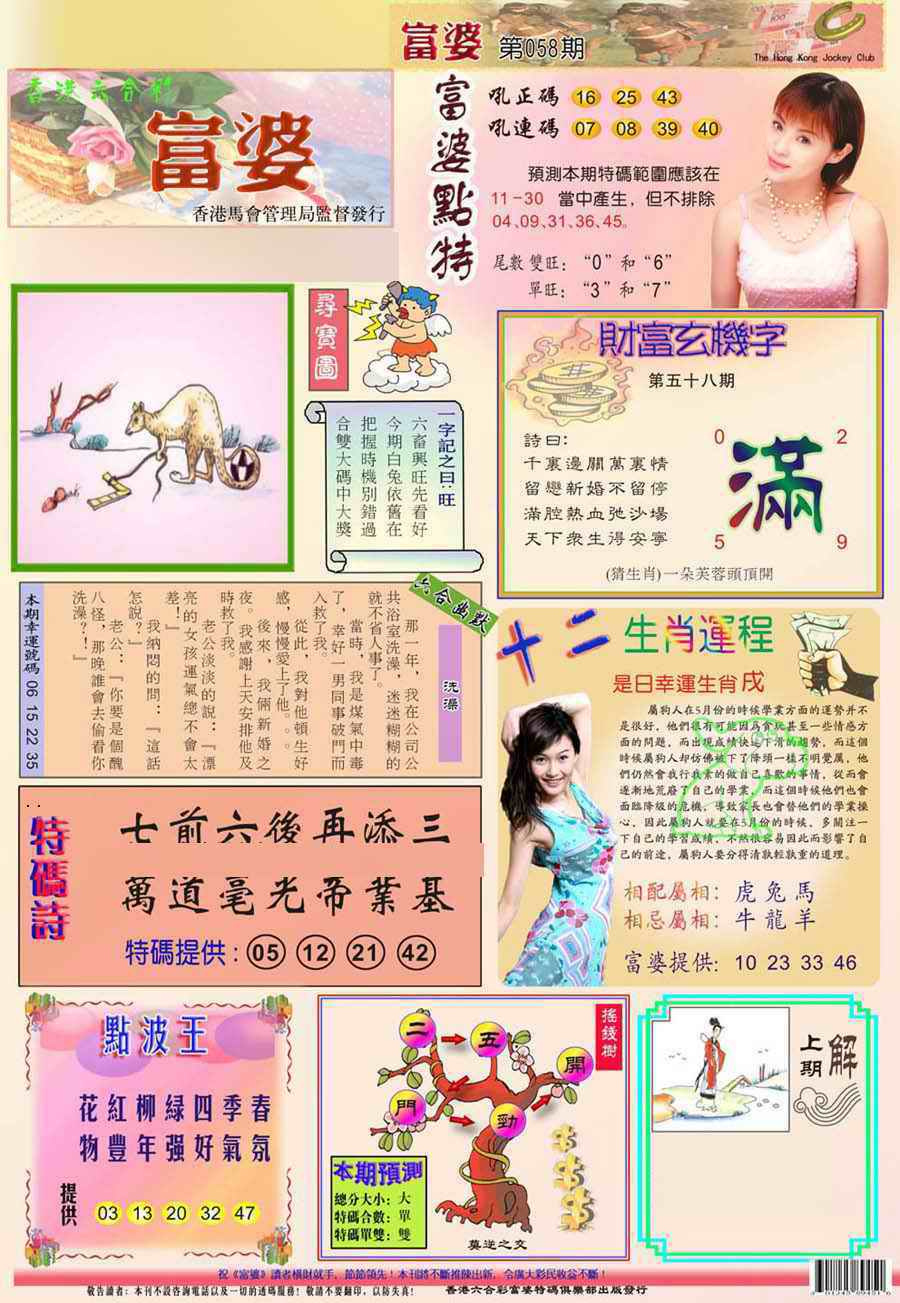 富婆 第058期
The Hong Kong Jockey Club
香港六合彩
富婆
香港馬會管理局監督發行
富婆點特
吼正碼 16 25 43
吼連碼 07 08 39 40
預測本期特碼範圍應該在
11-30 當中產生，但不排除
04、09、31、36、45。
尾數雙旺：“0”和“6”
單旺：“3”和“7”
尋寶圖
一字記之曰：旺
六畜興旺先看好
今期白兔依舊在
把握時機別錯過
合雙大碼中大獎
財富玄機字
第五十八期
詩曰：
千裏邊關萬裏情
留戀新婚不留停
滿腔熱血弛沙場
天下衆生得安寧
0 2
滿
5 9
(猜生肖)一朵芙蓉頭頂開
六合幽默
洗澡
那一年，我在公司公
共浴室洗澡，迷迷糊糊的
就不省人事了。
當時，我是煤氣中毒
了，幸好一男同事破門而
入救了我。
從此，我對他頓生好
感，慢慢愛上了他。。。
後來，我倆新婚之
夜。我感謝上天安排他及
時救了我。
老公淡淡的說：『漂
亮的女孩運氣總不會太
差！』
我納悶的問：『這話
怎説？』
老公：『你要是個醜
八怪，那晚誰會去偷看你
洗澡？！』
本期幸運號碼 06 15 22 35
十二生肖運程
是日幸運生肖戌
屬狗人在5月份的時候學業方面的運勢并不
是很好，他們很有可能因爲貪玩甚至一些情感方
面的問題，而出現成績快速下滑的趨勢，而這個
時候屬狗人却仿佛被下了降頭一樣不明覺厲，他
們仍然會我行我素的做自己喜歡的事情，從而會
逐漸地荒廢了自己的學業，而這個時候他們也會
面臨降級的危機，導致家長也會替他們的學業操
心，因此屬狗人就要在5月份的時候，多關注一
下自己的學習成績，不然很容易因此而影響了自
己的前途，屬狗人要分得清孰輕孰重的道理。
相配屬相：虎兔馬
相忌屬相：牛龍羊
富婆提供：10 23 33 46
特碼詩
七前六後再添三
萬道毫光帝業基
特碼提供：05 12 21 42
點波王
花紅柳緑四季春
物豐年强好氣氛
提供
03 13 20 32 47
搖錢樹
二 五
開
門 勁
本期預測
總分大小：大
特碼合數：單
特碼單雙：雙
莫逆之交
上期解
祝《富婆》讀者橫財就手，節節領先！本刊將不斷推陳出新，令廣大彩民收益不斷！
敬告讀者：本刊不設咨詢電話以及一切的透碼服務！敬請不要翻印，以防失真！ 香港六合彩富婆特碼俱樂部出版發行